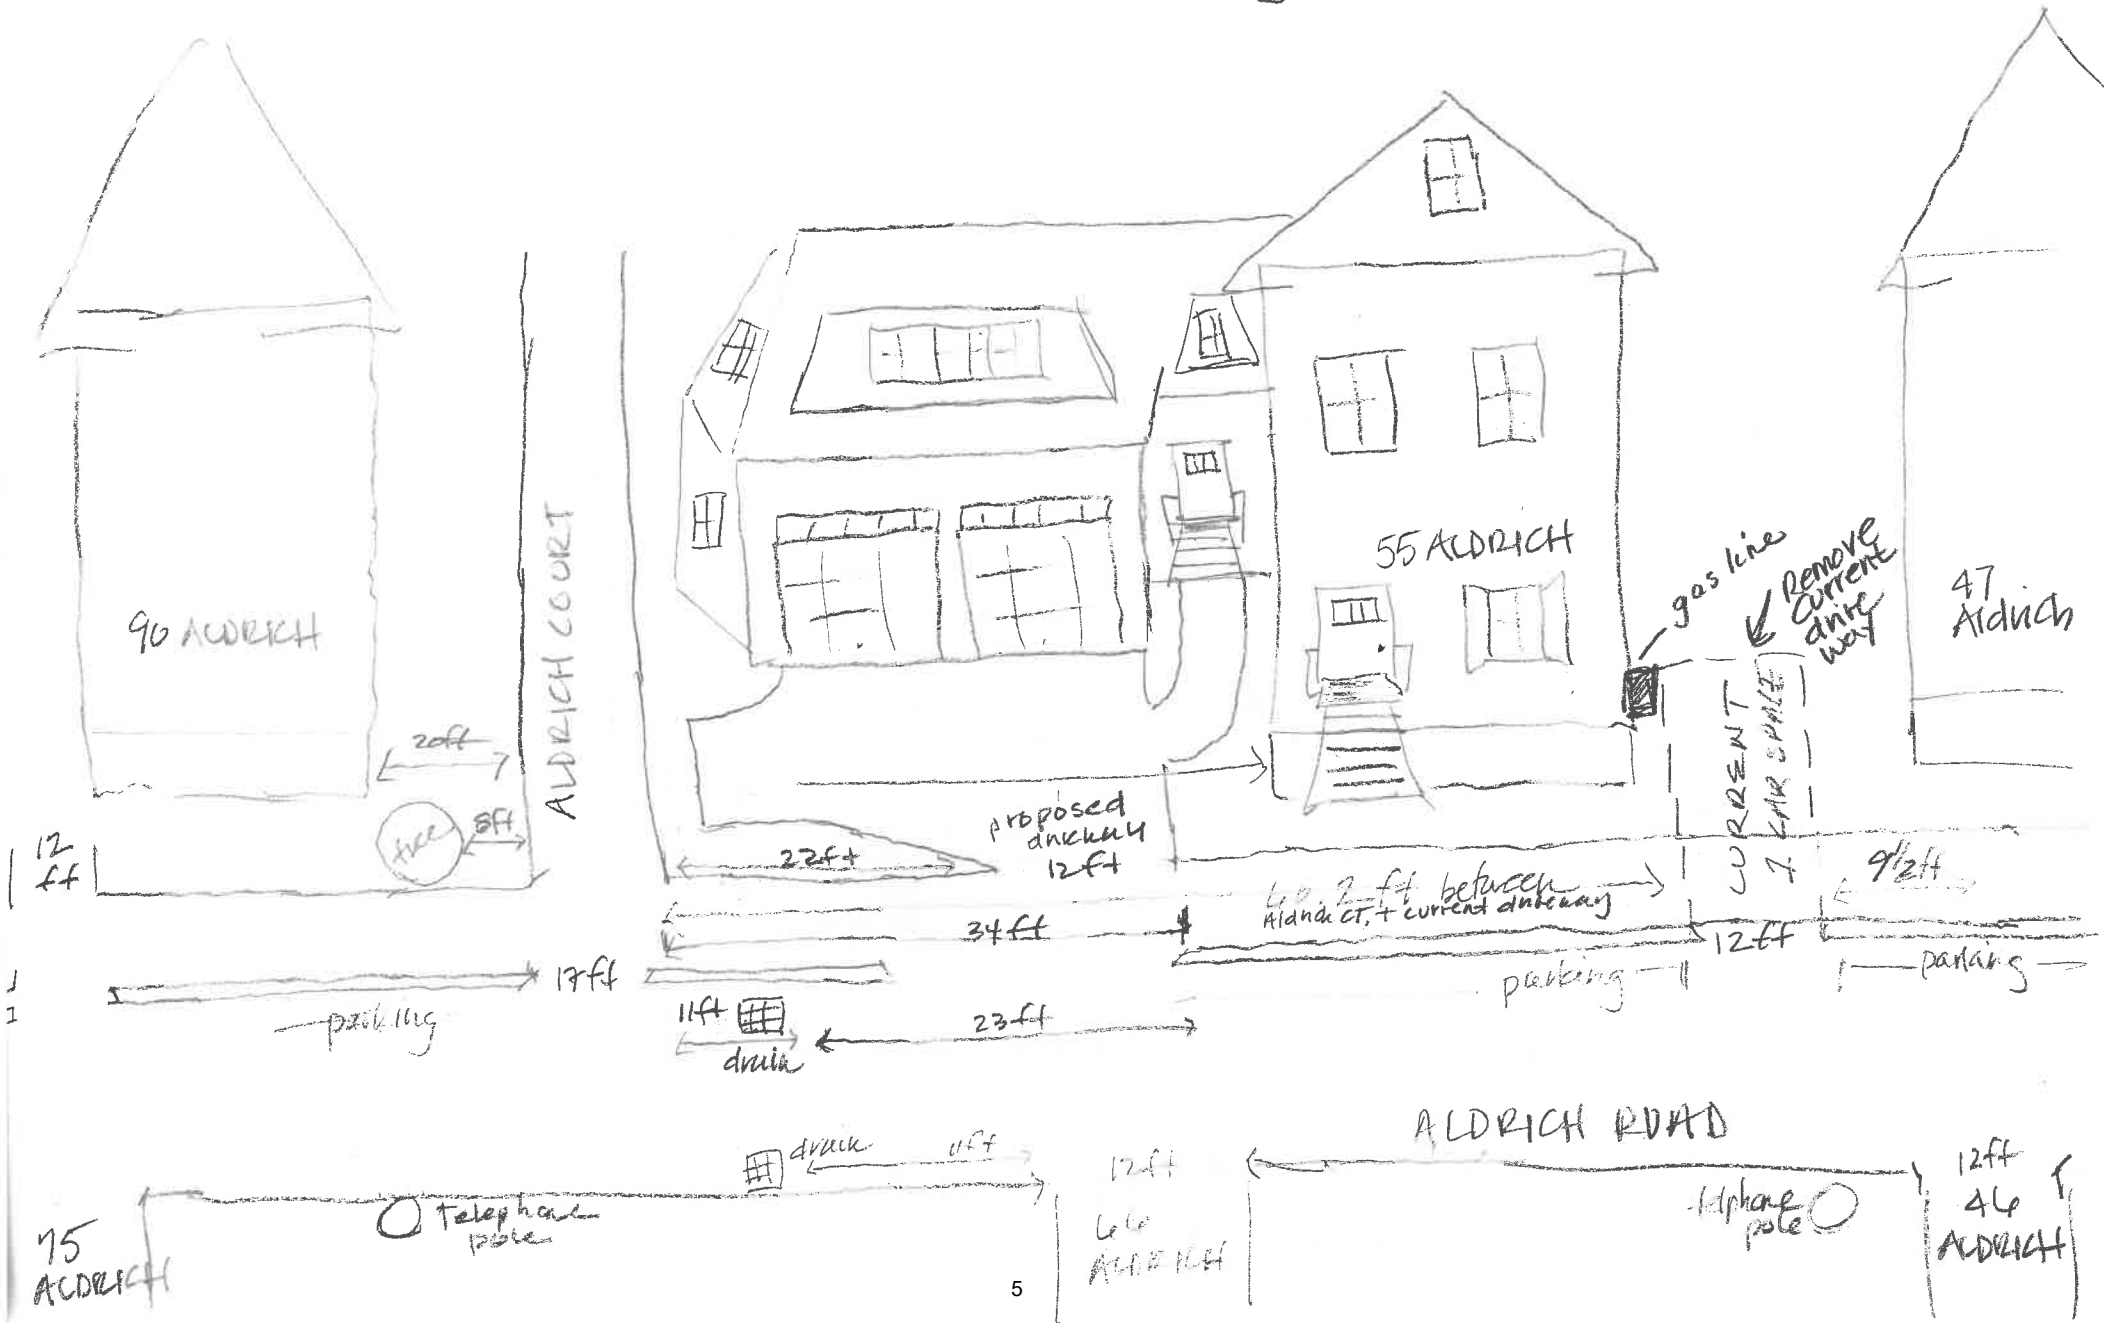 90 ALDRICH
20ft
tree
8ft
12
ft
ALDRICH COURT
55 ALDRICH
gas line
Remove
current
drive
way
47
Aldrich
CURRENT
1 CAR SPACE
proposed
driveway
12ft
22ft
ft between
Aldrich CT. + current driveway
9 1/2ft
34ft
12ft
17ft
parking
parking
parking
11ft
drain
23ft
ALDRICH ROAD
drain
11ft
12ft
66
ALDRICH
12ft
46
ALDRICH
Telephone
pole
telphone
pole
75
ALDRICH
5